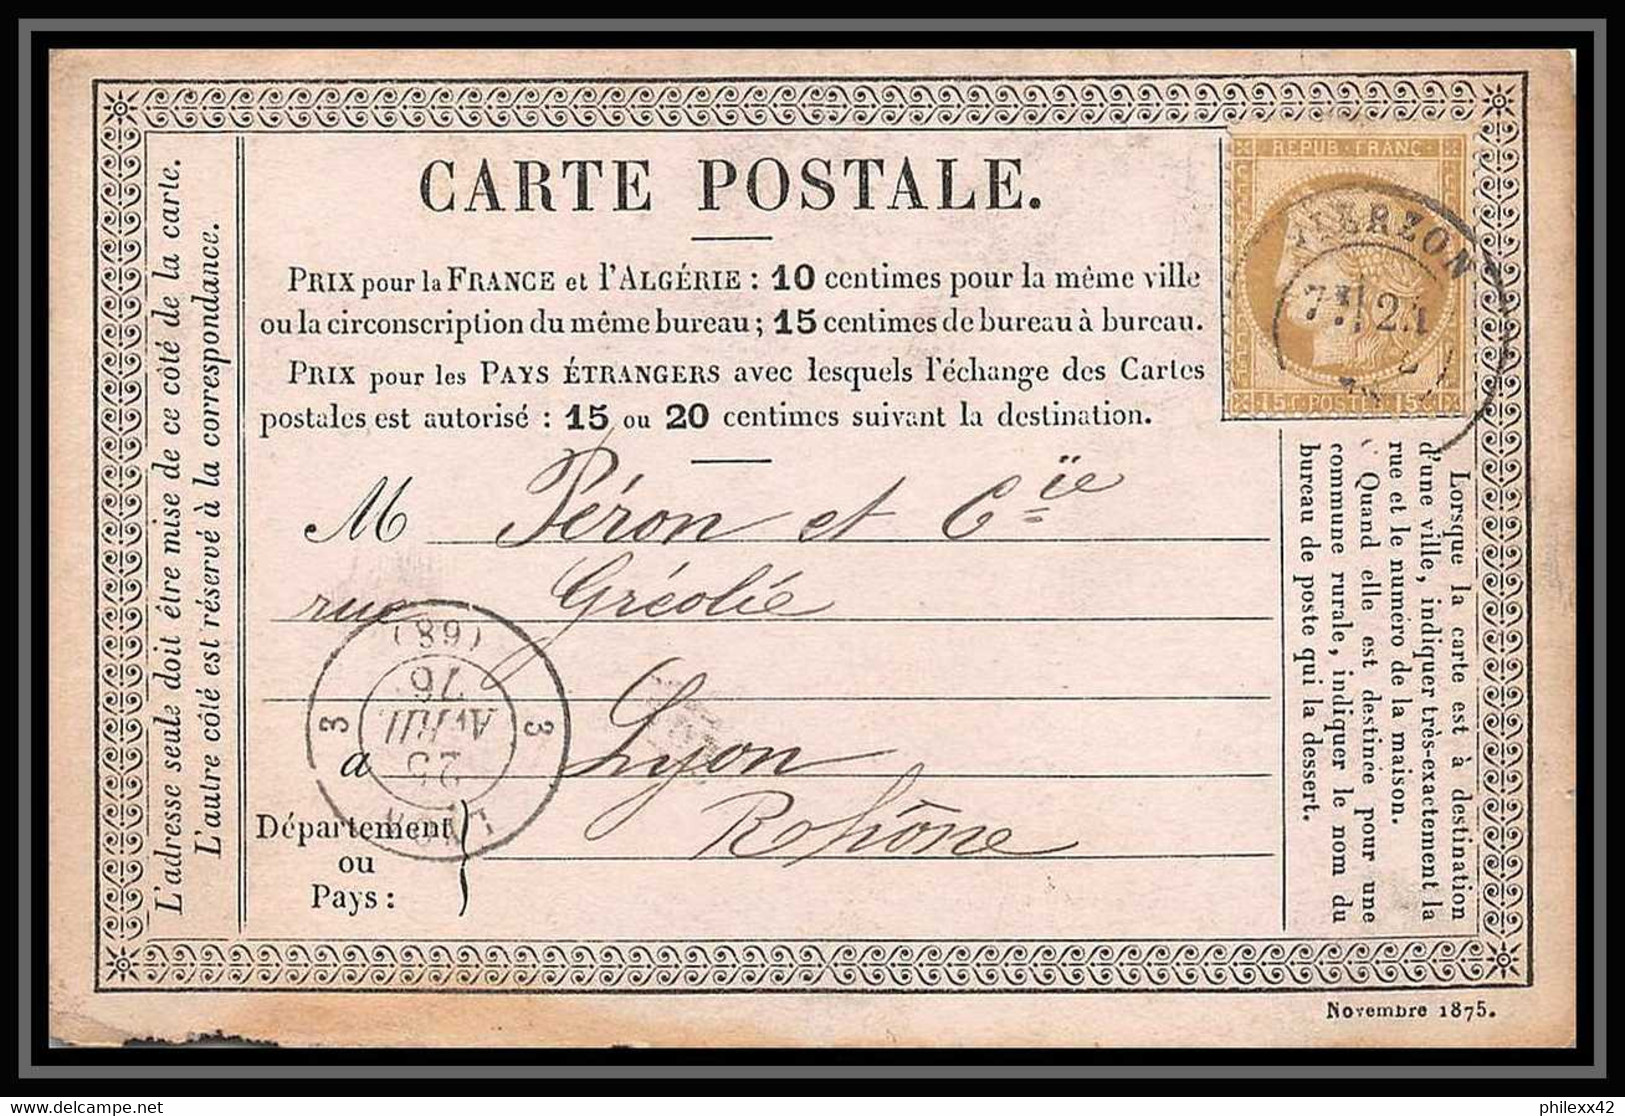 CARTE POSTALE.
PRIX pour la FRANCE et l'ALGÉRIE : 10 centimes pour la même ville
ou la circonscription du même bureau ; 15 centimes de bureau à bureau.
PRIX pour les PAYS ÉTRANGERS avec lesquels l'échange des Cartes
postales est autorisé : 15 ou 20 centimes suivant la destination.
REPUB · FRANC ·
VIERZON
15 c. POSTES 15 c.
M Péron et Cïe
rue Gréolée
à Lyon
Rohône
Département
ou
Pays :
(68)
76
AVRIL
25
3 3
LYON
L'adresse seule doit être mise de ce côté de la carte.
L'autre côté est réservé à la correspondance.
Lorsque la carte est à destination
d'une ville, indiquer très-exactement la
rue et le numéro de la maison.
Quand elle est destinée pour une
commune rurale, indiquer le nom du
bureau de poste qui la dessert.
Novembre 1875.
delcampe.net
philexx42